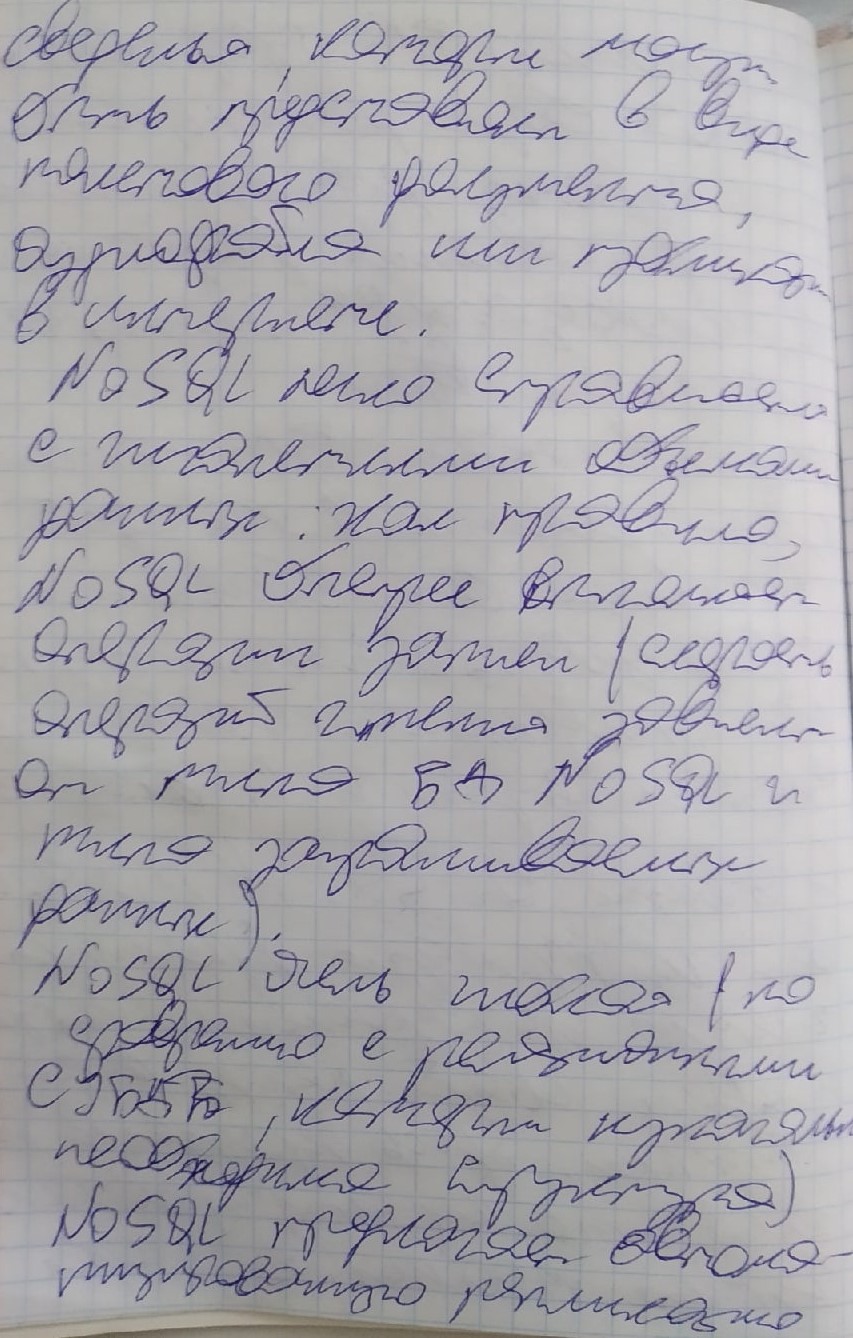 сведенья, которые могут
быть представлен в виде
текстового документа,
аудиофайла или публикации
в интернете.
NoSQL легко справляется
с гигантскими объемами
данных: как правило,
NoSQL быстрее выполняет
операции записи (скорость
операций чтения зависит
от типа БД NoSQL и
типа запрашиваемых
данных).
NoSQL очень гибкая (по
сравнению с реляционными
СУБД, которым
необходима структура)
NoSQL предлагает автома-
тизированную репликацию